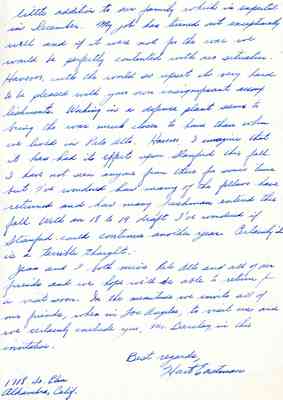 little addition to our family which is expected
in December. My job has turned out exceptionally
well and if it was not for the war we
would be perfectly contented with our situation.
However with the world so upset it's very hard
to be pleased with your own insignificant accomp-
lishments. Working in a defense plant seems to
bring the war much closer to home than when
we lived in Palo Alto. However I imagine that
it has had its effect upon Stanford this fall.
I have not seen anyone from there for some time
but I've wondered how many of the fellows have
returned and how many freshman entered this
fall. With an 18 to 19 draft I've wondered if
Stanford could continue another year. Certainly it
is a terrible thought.
Jean and I both miss Palo Alto and all of our
friends and we hope we'll be able to return for
a visit soon. In the meantime we invite all of
our friends, when in Los Angeles, to visit us and
we certainly include you, Mr. in this
invitation.
Best regards,
Hart Eastman
1718 So.
Alhambra, Calif.